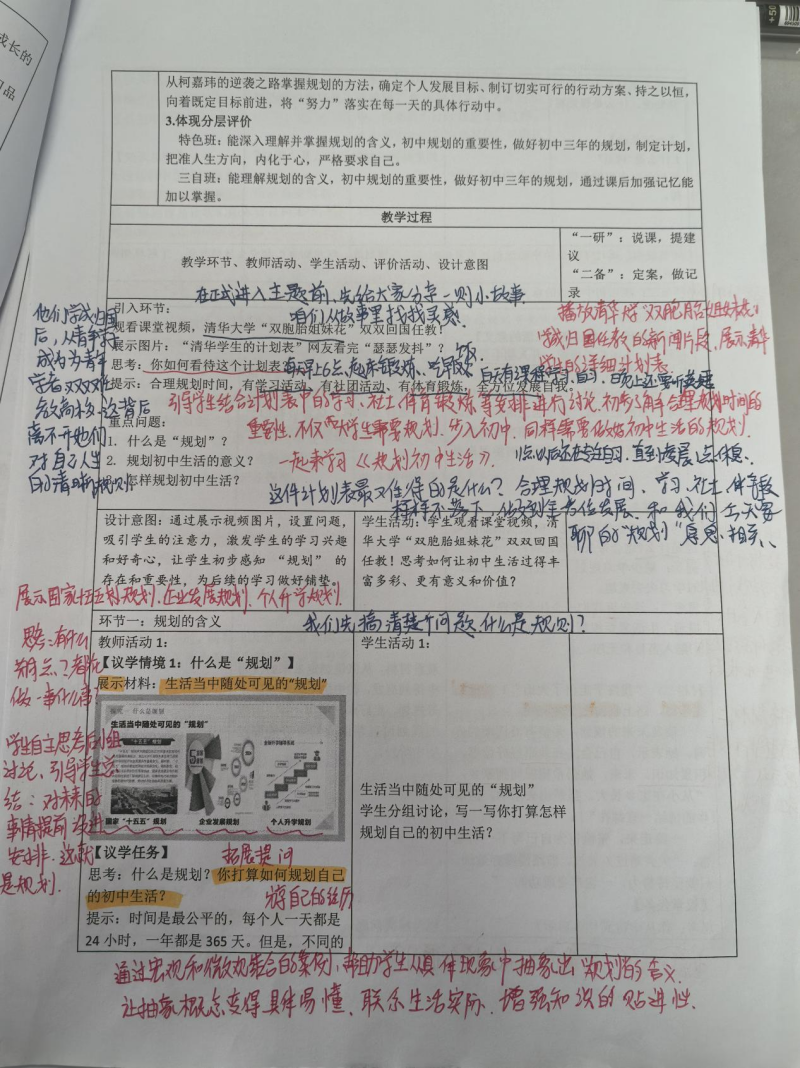 成长的
品
从柯嘉玮的逆袭之路掌握规划的方法，确定个人发展目标、制订切实可行的行动方案、持之以恒，
向着既定目标前进，将“努力”落实在每一天的具体行动中。
3.体现分层评价
特色班：能深入理解并掌握规划的含义，初中规划的重要性，做好初中三年的规划，制定计划，
把准人生方向，内化于心，严格要求自己。
三自班：能理解规划的含义，初中规划的重要性，做好初中三年的规划，通过课后加强记忆能
加以掌握。
教学过程
教学环节、教师活动、学生活动、评价活动、设计意图
“一研”：说课，提建
议
“二备”：定案，做记
录
在正式进入主题前，先给大家分享一则小故事
引入环节：
咱们从故事里找找灵感
观看课堂视频，清华大学“双胞胎姐妹花”双双回国任教！
展示图片：“清华学生的计划表”网友看完“瑟瑟发抖”？
思考：你如何看待这个计划表
每天早上6点起床锻炼、吃早饭
提示：合理规划时间，有学习活动、有社团活动、有体育锻炼，全方位发展自我。
播放清华大学“双胞胎姐妹花”
学成归国任教的新闻片段，展示清华
学生的详细计划表
他们学成归国
后，从清华学
成为为青年
离不开她们
对自己人生
的清晰规划
引导学生结合计划表中的学习、社工、体育锻炼等安排进行讨论，初步了解合理规划时间的
重点问题：
重要性，不仅大学生需要规划，步入初中，同样需要做好初中生活的规划
1. 什么是“规划”？
2. 规划初中生活的意义？
一起来学习《规划初中生活》.
怎样规划初中生活？
这件计划表最又值得的是什么？合理规划时间、学习、社工、体育锻
样样不落下，做到全方位发展，和我们今天要
聊的“规划”息息相关、
设计意图：通过展示视频图片，设置问题，
吸引学生的注意力，激发学生的学习兴趣
和好奇心，让学生初步感知“规划”的
存在和重要性，为后续的学习做好铺垫。
学生活动：学生观看课堂视频，清
华大学“双胞胎姐妹花”双双回国
任教！思考如何让初中生活过得丰
富多彩、更有意义和价值？
展示国家十五五规划、企业发展规划、个人升学规划.
环节一：规划的含义
我们先搞清楚个问题，什么是规则？
教师活动 1：
【议学情境 1：什么是“规划”】
展示材料：生活当中随处可见的“规划”
生活当中随处可见的“规划”
“十五五”规划
国家“十五五”规划
企业发展规划
个人升学规划
思考：有什么
共同点？都在
做一事什么事？
学生自主思考后小组
讨论、引导学生总
结：对未来的
事情提前设计
安排，这就
是规划.
学生活动 1：
生活当中随处可见的“规划”
学生分组讨论，写一写你打算怎样
规划自己的初中生活？
【议学任务】
拓展提问
思考：什么是规划？你打算如何规划自己
的初中生活？
自己的经历
提示：时间是最公平的，每个人一天都是
24 小时，一年都是 365 天。但是，不同的
通过宏观和微观结合的案例，帮助学生从具体现象中抽象出规划的含义.
让抽象概念变得具体易懂、联系生活实际、增强知识的贴近性.